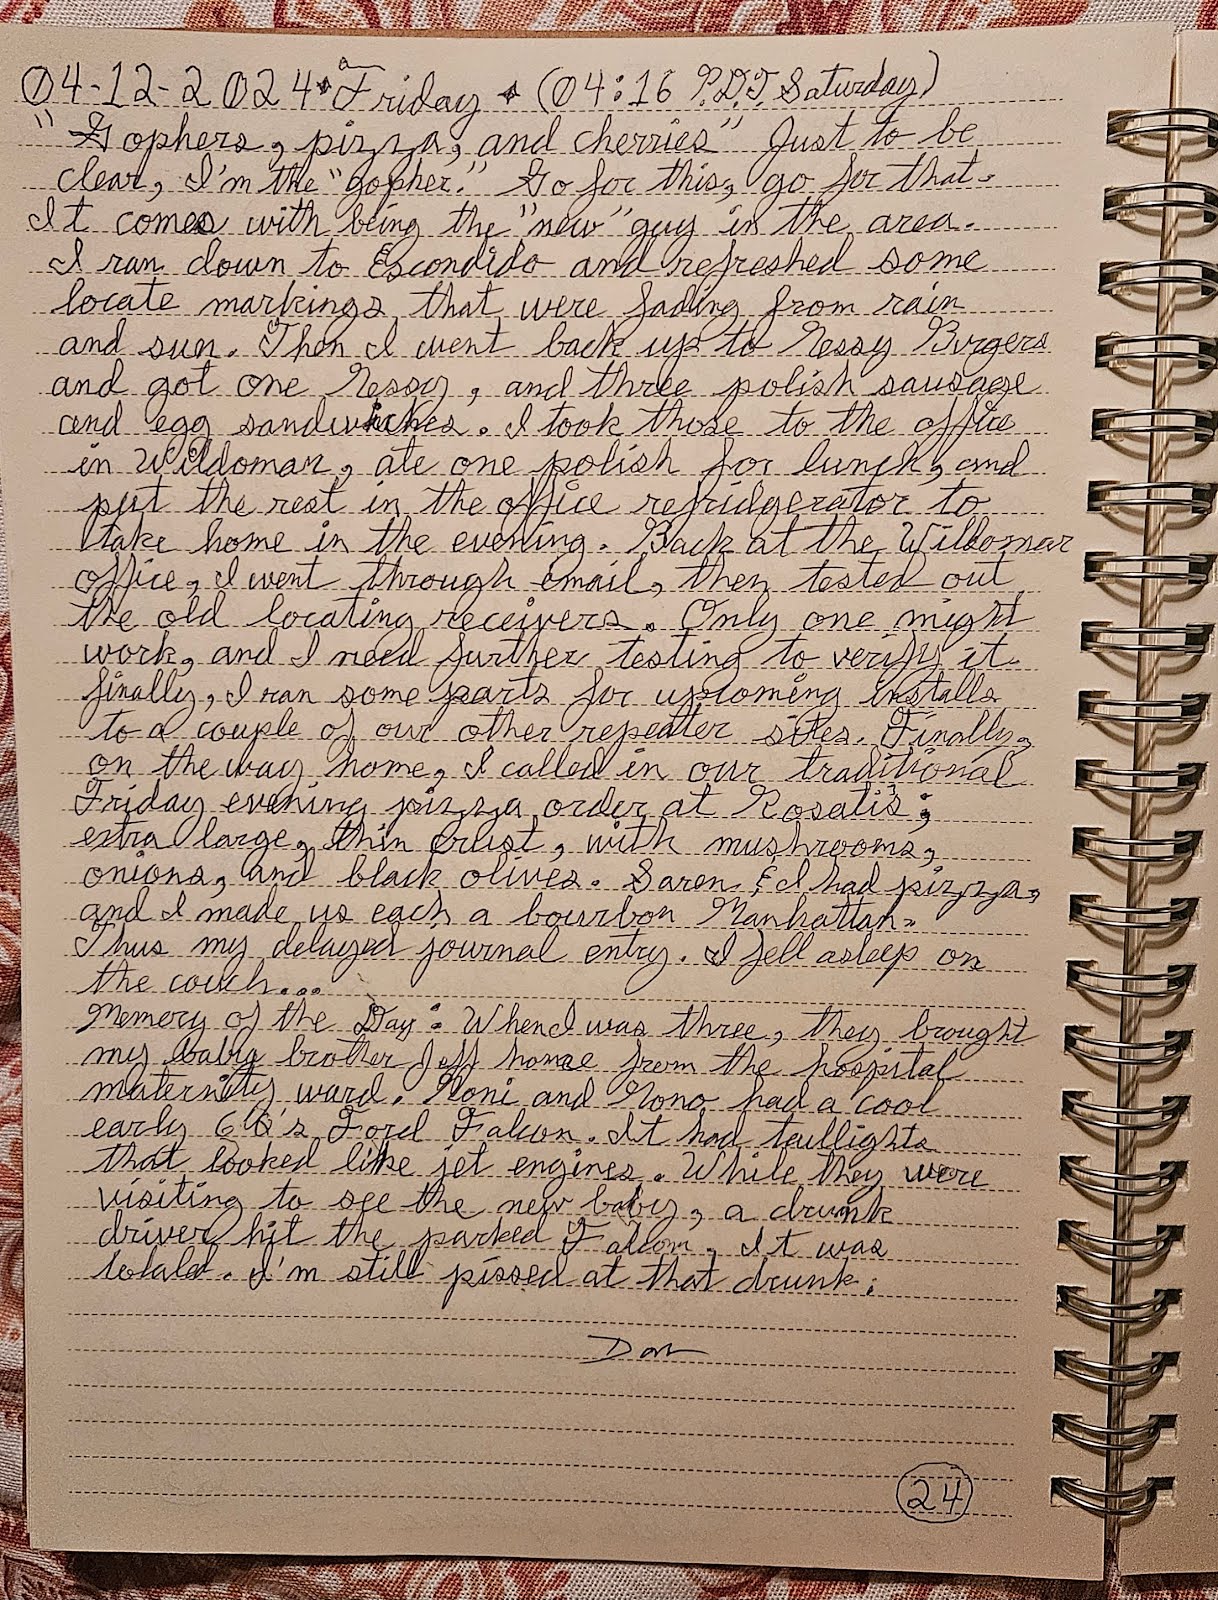 04-12-2024 Friday (04:16 P.D.T. Saturday)
"Gophers, pizza, and cherries" Just to be
clear, I'm the "gopher." Go for this, go for that.
It comes with being the "new" guy in the area.
I ran down to Escondido and refreshed some
locate markings that were fading from rain
and sun. Then I went back up to Nessy Burgers
and got one Nessy, and three polish sausage
and egg sandwiches. I took those to the office
in Wildomar, ate one polish for lunch, and
put the rest in the office refridgerator to
take home in the evening. Back at the Wildomar
office, I went through email, then tested out
the old locating receivers. Only one might
work, and I need further testing to verify it.
finally, I ran some parts for upcoming installs
to a couple of our other repeater sites. Finally,
on the way home, I called in our traditional
Friday evening pizza order at Rosatis;
extra large, thin crust, with mushrooms,
onions, and black olives. Saren & I had pizza,
and I made us each a bourbon Manhattan.
Thus my delayed journal entry. I fell asleep on
the couch...
Memory of the Day: When I was three, they brought
my baby brother Jeff home from the hospital
maternity ward. Noni and Nono had a cool
early 60's Ford Falcon. It had taillights
that looked like jet engines. While they were
visiting to see the new baby, a drunk
driver hit the parked Falcon. It was
totald. I'm still pissed at that drunk.
Don
24